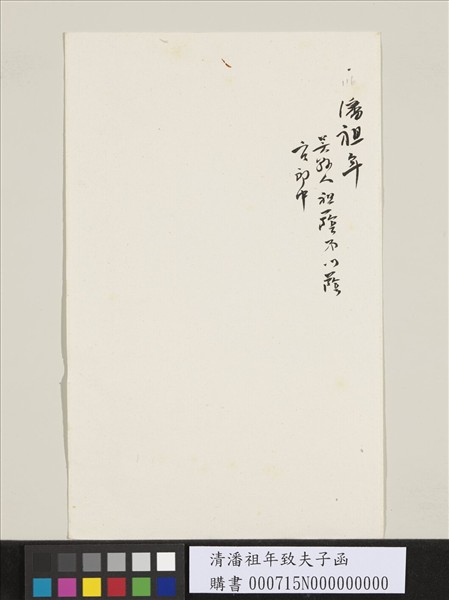 潘祖年
吳縣人祖蔭弟以蔭
官郎中
清潘祖年致夫子函
購書 000715N000000000